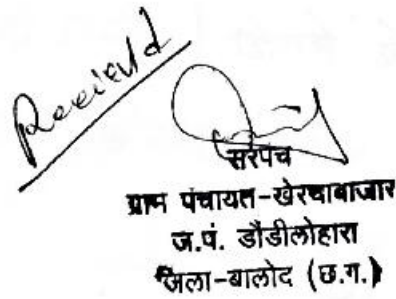 Recieved
सरपंच
ग्राम पंचायत-खेरथाबाजार
ज.पं. डौंडीलोहारा
जिला-बालोद (छ.ग.)